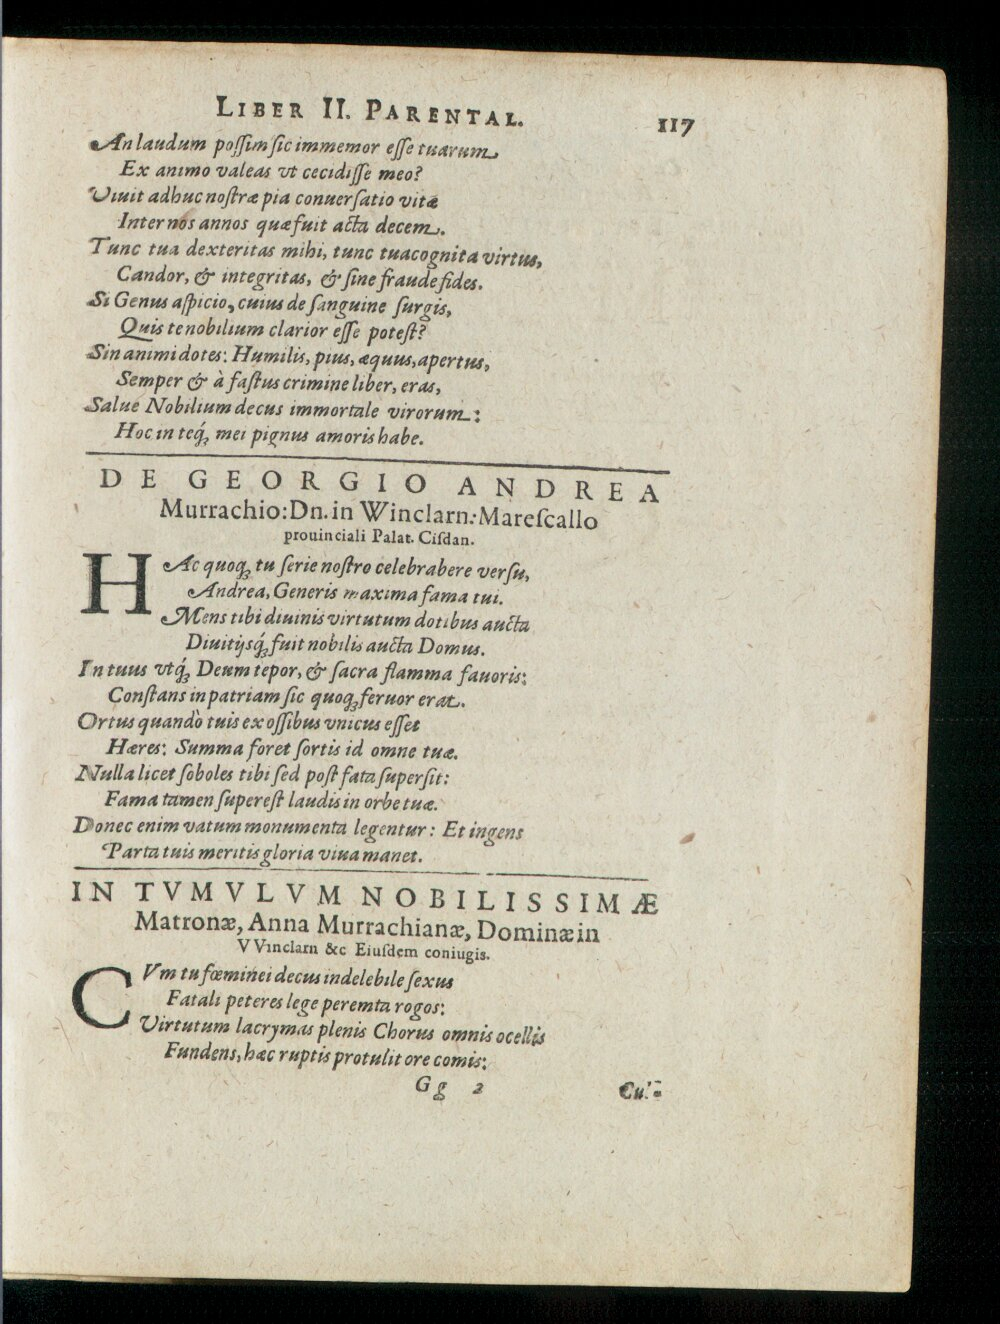 LIBER II. PARENTAL. 117
An laudum poſſim ſic immemor eſſe tuarum
Ex animo valeas vt cecidiſſe meo?
Viuit adhuc noſtræ pia conuerſatio vitæ
Inter nos annos quæ fuit acta decem.
Tunc tua dexteritas mihi, tunc tua cognita virtus,
Candor, & integritas, & ſine fraude fides.
Si Genus aſpicio, cuius de ſanguine ſurgis,
Quis te nobilium clarior eſſe poteſt?
Sin animi dotes: Humilis, pius, æquus, apertus,
Semper & à faſtus crimine liber, eras,
Salue Nobilium decus immortale virorum:
Hoc in teq́ꝫ mei pignus amoris habe.
DE GEORGIO ANDREA
Murrachio: Dn. in Winclarn: Mareſcallo
prouinciali Palat. Ciſdan.
HAc quoqꝫ tu ſerie noſtro celebrabere verſu,
Andrea, Generis maxima fama tui.
Mens tibi diuinis virtutum dotibus aucta
Diuitijsq́ꝫ fuit nobilis aucta Domus.
In tuus vtq́ꝫ Deum tepor, & ſacra flamma fauoris:
Conſtans in patriam ſic quoqꝫ feruor erat.
Ortus quandò tuis ex oſſibus vnicus eſſet
Hæres: Summa foret ſortis id omne tuæ.
Nulla licet ſoboles tibi ſed poſt fata ſuperſit:
Fama tamen ſupereſt laudis in orbe tuæ.
Donec enim vatum monumenta legentur: Et ingens
Parta tuis meritis gloria viua manet.
IN TVMVLVM NOBILISSIMÆ
Matronæ, Anna Murrachianæ, Dominæ in
VVinclarn &c Eiuſdem coniugis.
CVm tu fœminei decus indelebile ſexus
Fatali peteres lege peremta rogos:
Virtutum lacrymas plenis Chorus omnis ocellis
Fundens, hæc ruptis protulit ore comis:
Gg 2